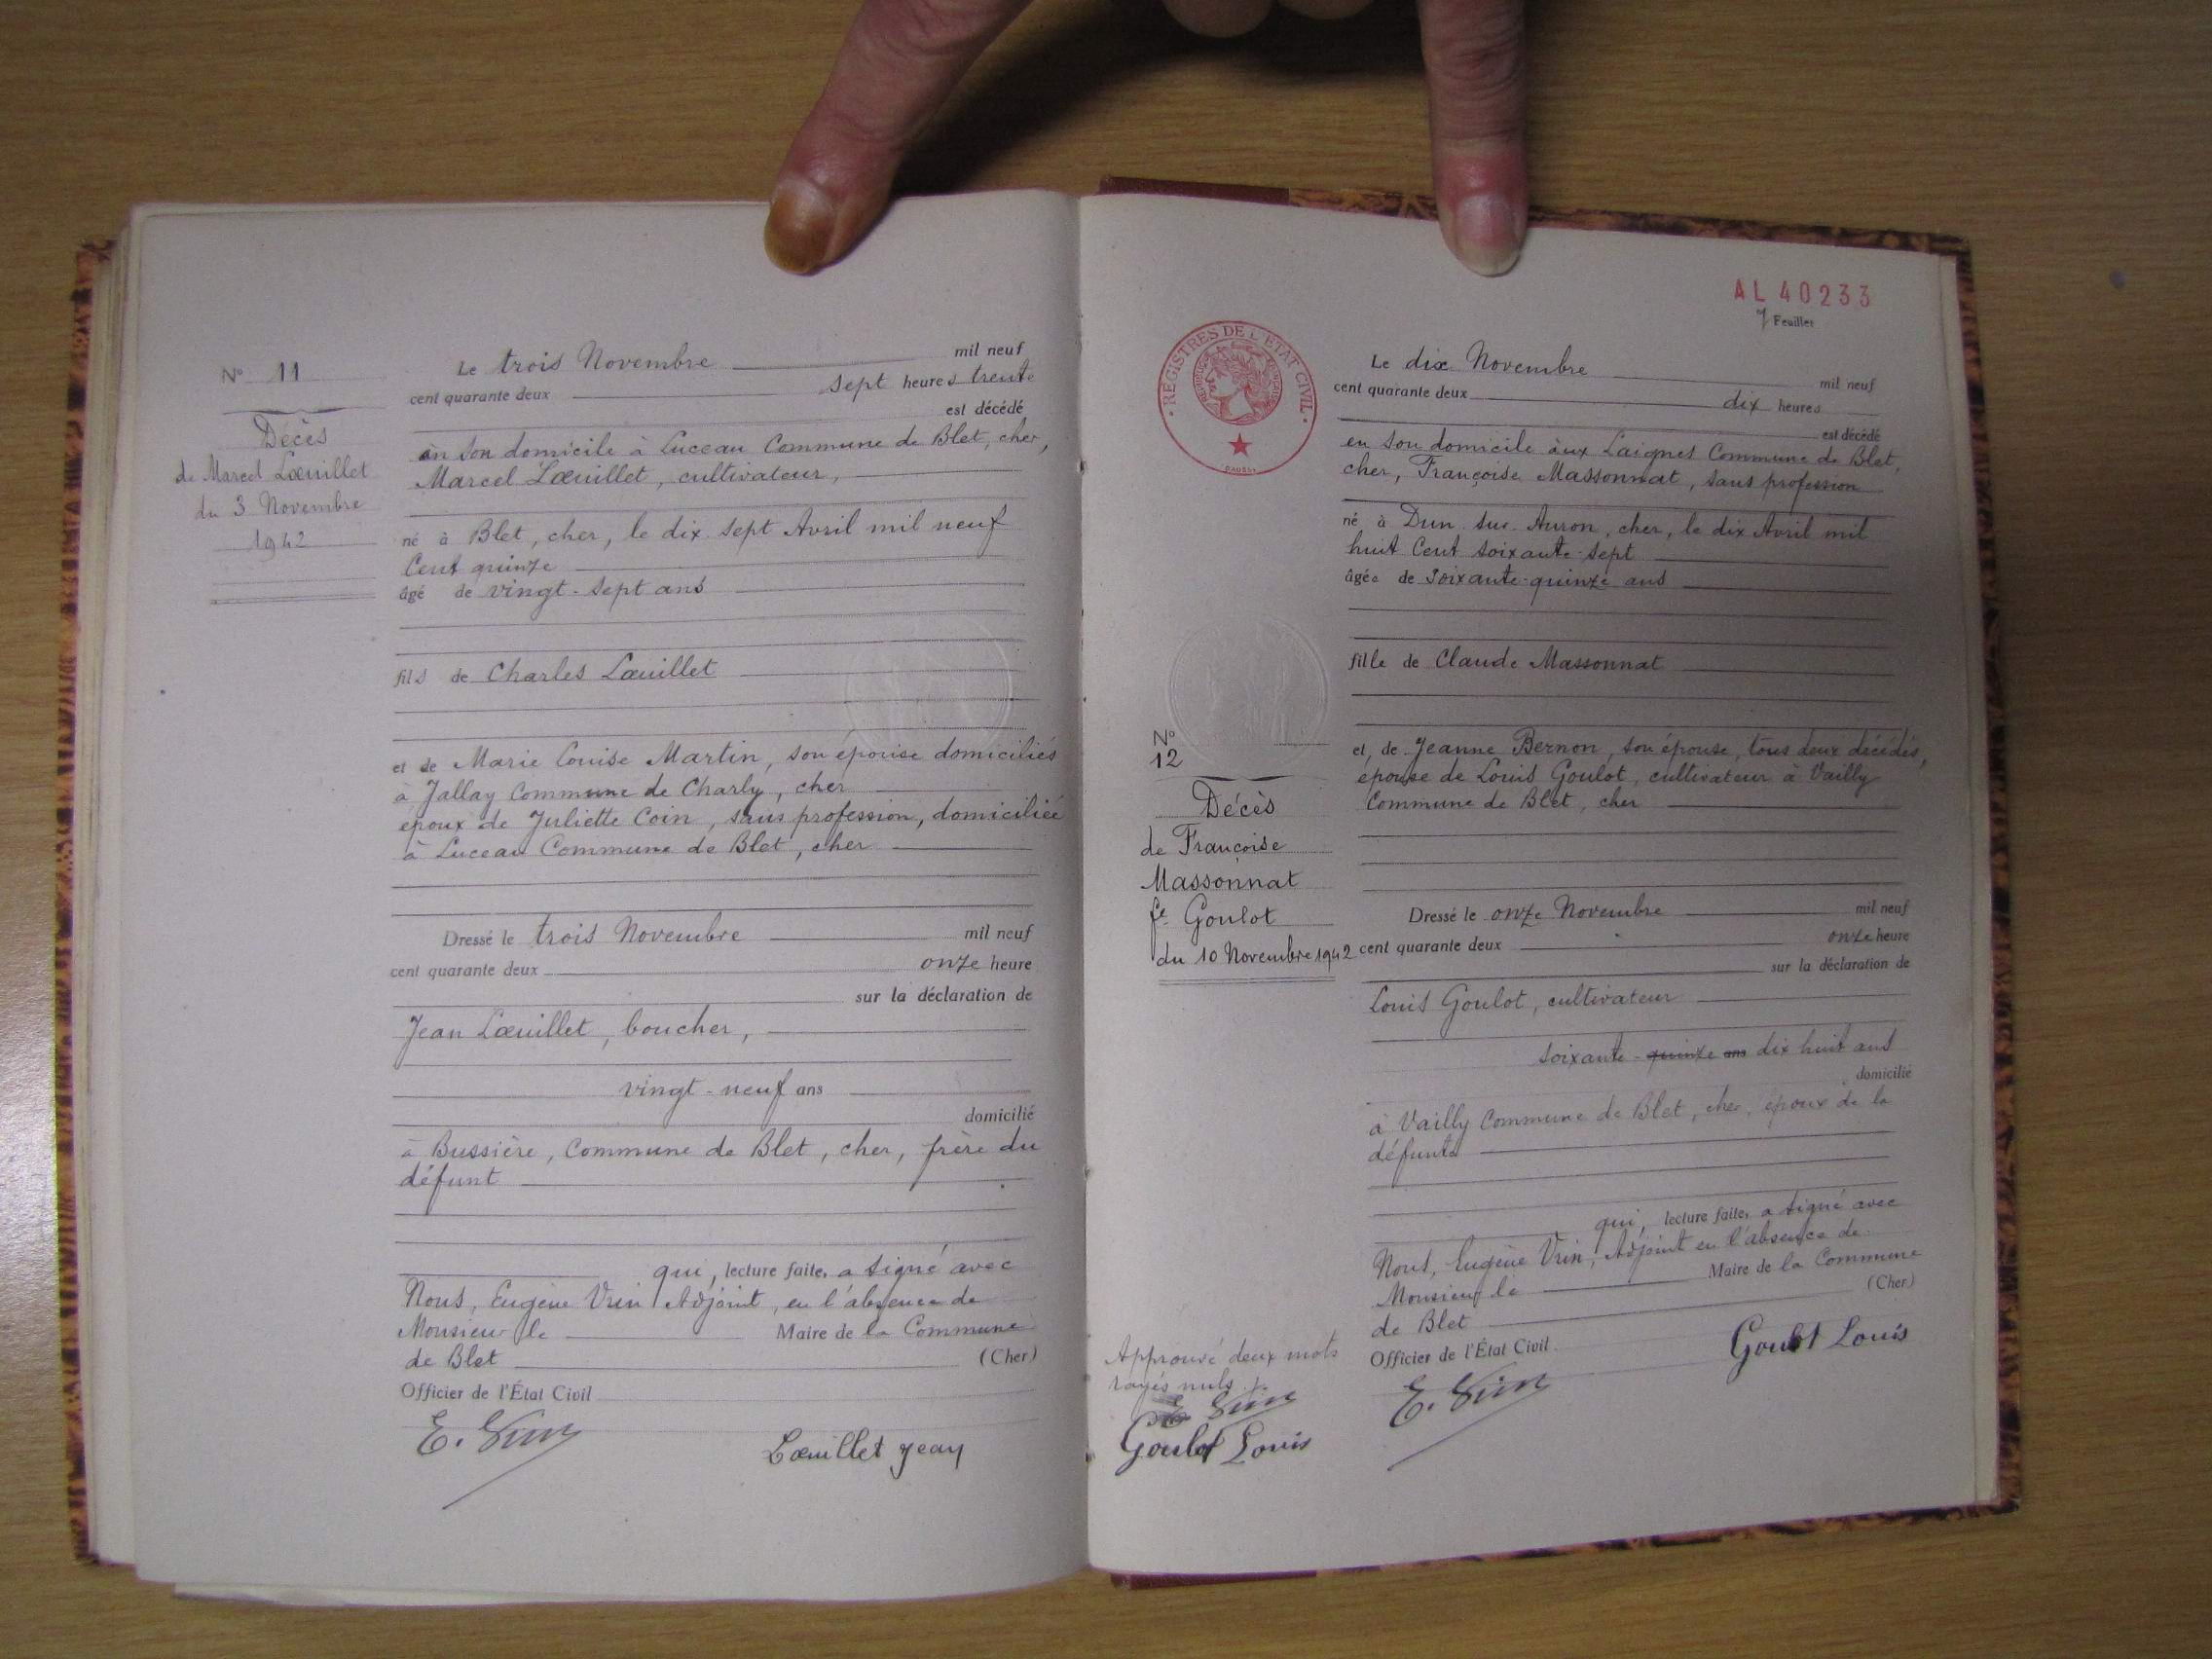 N° 11
Décès
de Marcel Lœuillet
du 3 Novembre
1942
Le trois Novembre mil neuf
cent quarante deux sept heures trente
est décédé
en son domicile à Luceau Commune de Blet, cher,
Marcel Lœuillet, cultivateur,
né à Blet, cher, le dix sept Avril mil neuf
Cent quinze
âgé de vingt-sept ans
fils de Charles Lœuillet
et de Marie Louise Martin, son épouse domiciliés
à Jallay Commune de Charly, cher
époux de Juliette Coin, sans profession, domiciliée
à Luceau Commune de Blet, cher
Dressé le trois Novembre mil neuf
cent quarante deux onze heure
sur la déclaration de
Jean Lœuillet, boucher,
vingt-neuf ans
domicilié
à Bussière, Commune de Blet, cher, frère du
défunt
qui, lecture faite, a signé avec
Nous, Eugène Vrin Adjoint, en l'absence de
Monsieur le Maire de la Commune
de Blet (Cher)
Officier de l'État Civil
E. Vrin
Lœuillet Jean
AL 40233
7 Feuillet
REGISTRES DE L'ETAT CIVIL
Le dix Novembre mil neuf
cent quarante deux dix heures
est décédé
en son domicile aux Laignes Commune de Blet,
cher, Françoise Massonnat, sans profession
né à Dun sur Auron, cher, le dix Avril mil
huit Cent soixante-sept
âgée de soixante-quinze ans
fille de Claude Massonnat
N°
12
Décès
de Françoise
Massonnat
fe Goulot
du 10 Novembre 1942
et de Jeanne Bernon, son épouse, tous deux décédés,
épouse de Louis Goulot, cultivateur à Vailly
Commune de Blet, cher
Dressé le onze Novembre mil neuf
cent quarante deux onze heure
sur la déclaration de
Louis Goulot, cultivateur
soixante-quinze ans dix huit ans
domicilié
à Vailly Commune de Blet, cher, époux de la
défunte
qui, lecture faite, a signé avec
Nous, Eugène Vrin, Adjoint en l'absence de
Monsieur le Maire de la Commune
de Blet (Cher)
Officier de l'État Civil
Goulot Louis
E. Vrin
Approuvé deux mots
rayés nuls
E. Vrin
Goulot Louis